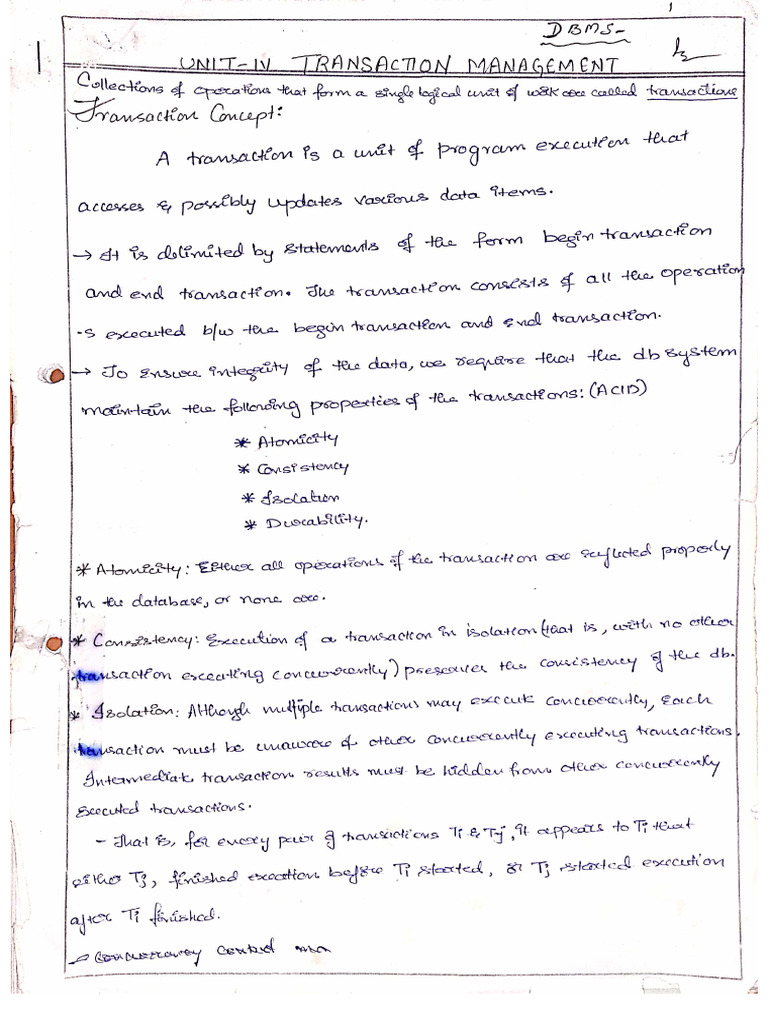 1
DBMS-
UNIT-IV TRANSACTION MANAGEMENT
Collections of operations that form a single logical unit of work are called transactions
Transaction Concept:
A transaction is a unit of program execution that
accesses & possibly updates various data items.
→ It is delimited by statements of the form begin transaction
and end transaction. The transaction consists of all the operation
-s executed b/w the begin transaction and end transaction.
→ To ensure integrity of the data, we require that the db system
maintain the following properties of the transactions: (ACID)
* Atomicity
* Consistency
* Isolation
* Durability.
* Atomicity: Either all operations of the transaction are reflected properly
in the database, or none are.
* Consistency: Execution of a transaction in isolation (that is, with no other
transaction executing concurrently) preserves the consistency of the db.
* Isolation: Although multiple transactions may execute concurrently, each
transaction must be unaware of other concurrently executing transactions.
Intermediate transaction results must be hidden from other concurrently
executed transactions.
- That is, for every pair of transactions Ti & Tj, it appears to Ti that
either Tj, finished execution before Ti started, or Tj started execution
after Ti finished.
→ Concurrency control